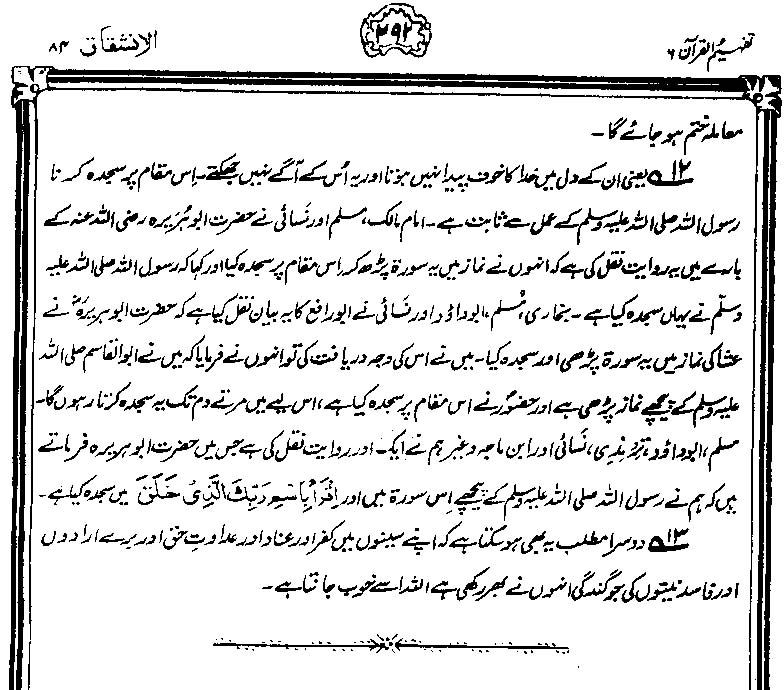 تفہیم القرآن ۶
۲۹۲
الانشقاق ۸۴
معاملہ ختم ہو جائے گا۔
۱۲ یعنی ان کے دل میں خدا کا خوف پیدا نہیں ہوتا اور یہ اُس کے آگے نہیں جھکتے۔ اِس مقام پر سجدہ کرنا
رسول اللہ صلی اللہ علیہ وسلم کے عمل سے ثابت ہے۔ امام مالک، مسلم اور نَسائی نے حضرت ابوہُرَیرہ رضی اللہ عنہ کے
بارے میں یہ روایت نقل کی ہے کہ انہوں نے نماز میں یہ سورۃ پڑھ کر اِس مقام پر سجدہ کیا اور کہا کہ رسول اللہ صلی اللہ علیہ
وسلّم نے یہاں سجدہ کیا ہے۔ بخاری، مُسلم، ابوداؤد اور نَسائی نے ابورافع کا یہ بیان نقل کیا ہے کہ حضرت ابوہریرہؓ نے
عشا کی نماز میں یہ سورۃ پڑھی اور سجدہ کیا۔ میں نے اس کی وجہ دریافت کی تو انہوں نے فرمایا کہ میں نے ابوالقاسم صلی اللہ
علیہ وسلم کے پیچھے نماز پڑھی ہے اور حضورؐ نے اس مقام پر سجدہ کیا ہے، اس لیے میں مرتے دم تک یہ سجدہ کرتا رہوں گا۔
مسلم، ابوداؤد، ترمذی، نَسائی اور ابن ماجہ وغیرہم نے ایک اور روایت نقل کی ہے جس میں حضرت ابوہریرہ فرماتے
ہیں کہ ہم نے رسول اللہ صلی اللہ علیہ وسلم کے پیچھے اِس سورۃ میں اور اِقْرَأْ بِاسْمِ رَبِّكَ الَّذِیْ خَلَقَ میں سجدہ کیا ہے۔
۱۳ دوسرا مطلب یہ بھی ہو سکتا ہے کہ اپنے سینوں میں کفر اور عناد اور عداوتِ حق اور برے ارادوں
اور فاسد نیتوں کی جو گندگی انہوں نے بھر رکھی ہے اللہ اسے خوب جانتا ہے۔